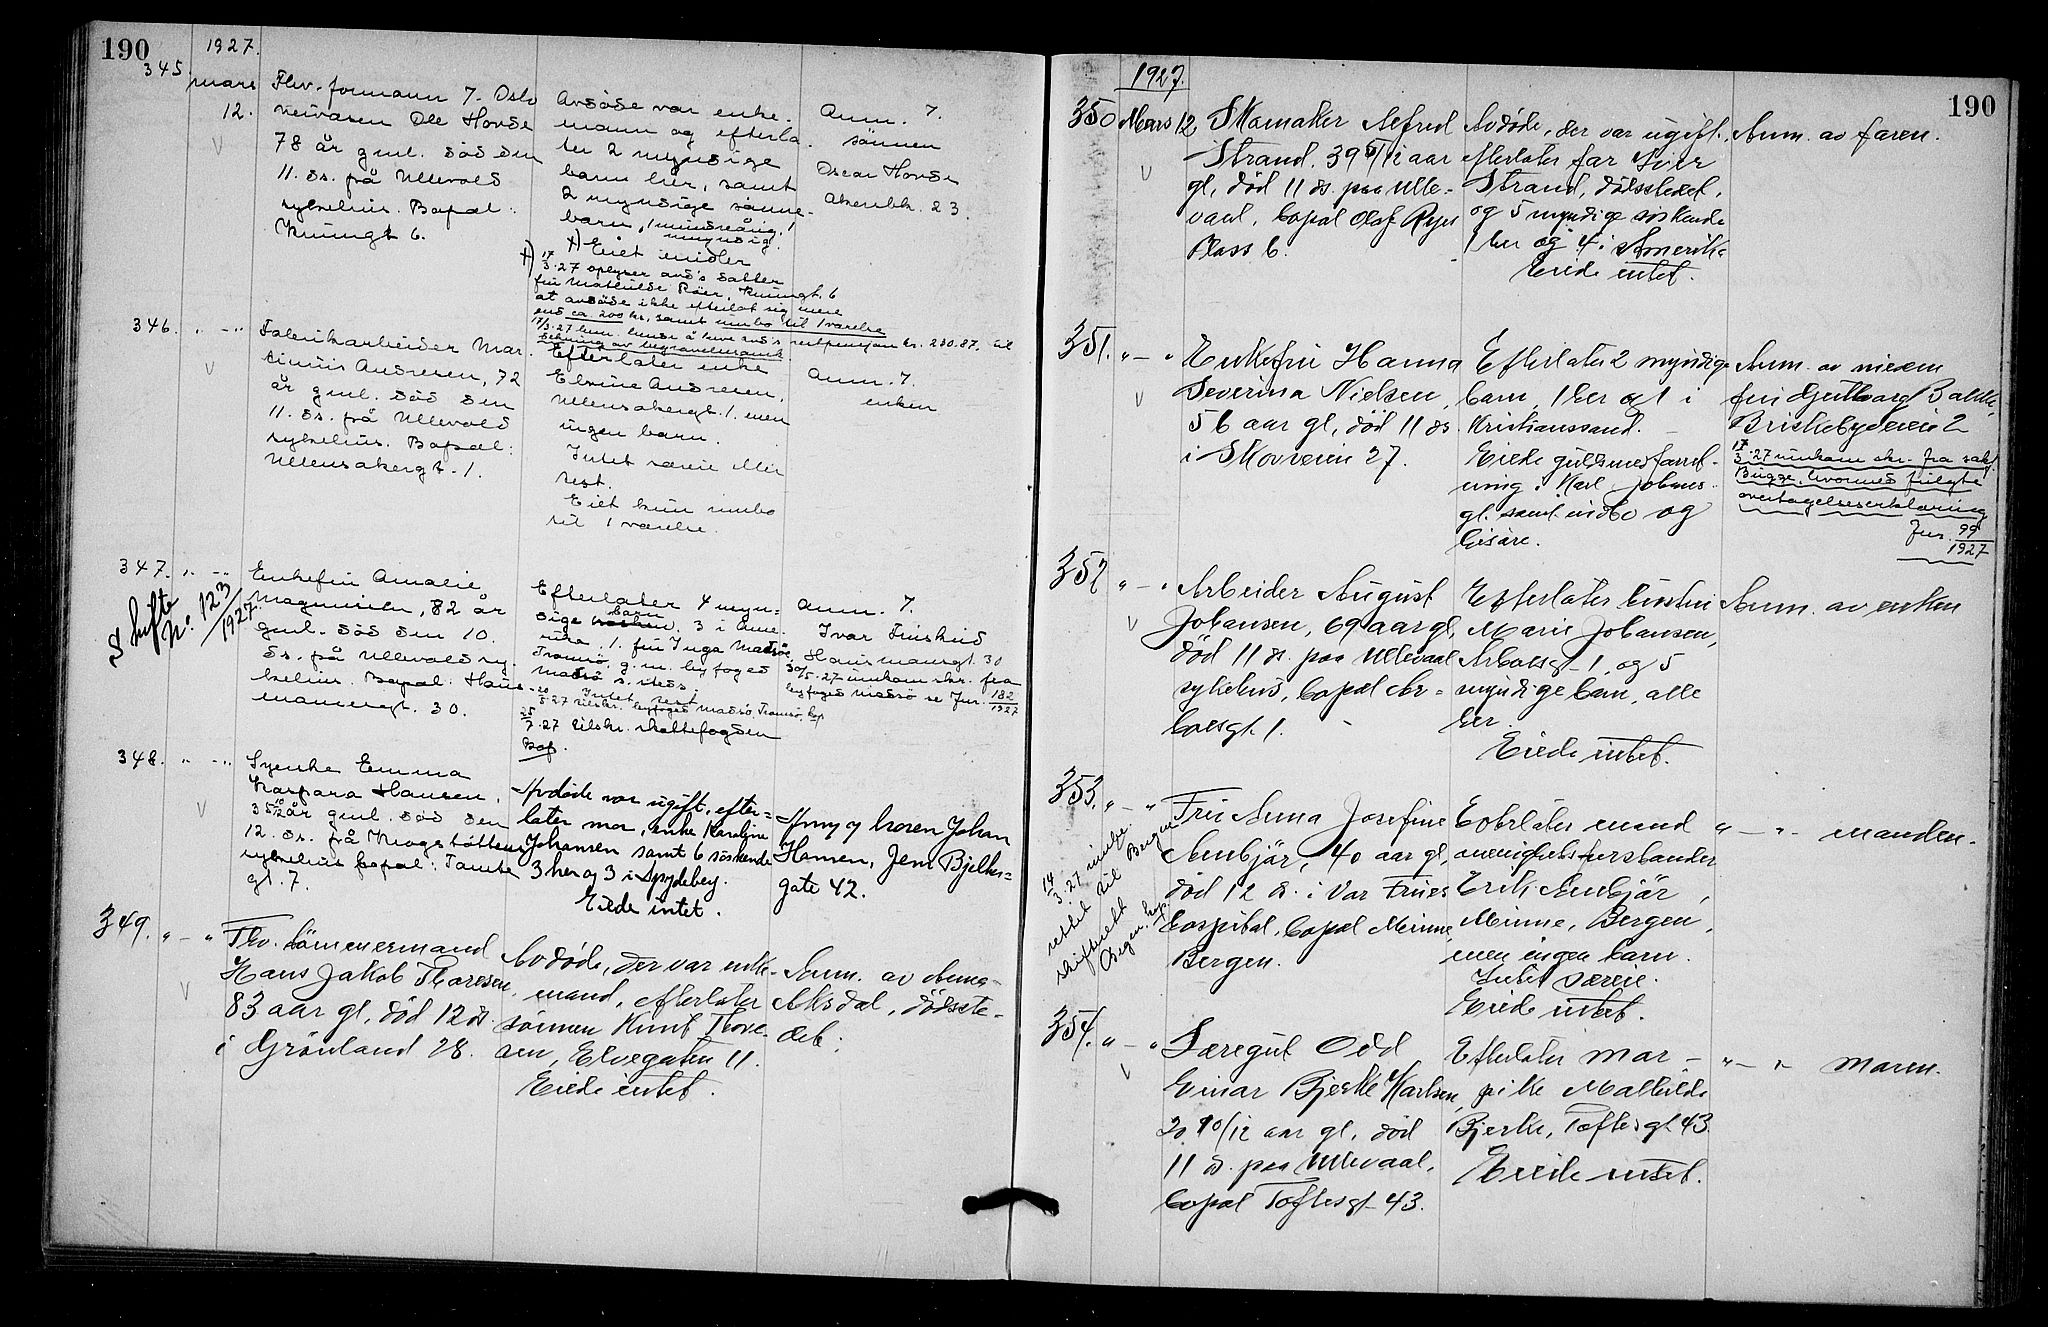 190
1927.
345.
mars
12.
Fhv. formann v. Oslo
veivæsen Ole Hovse
78 år gml. död den
11. ds. på Ullevold
sykehus. Bopæl:
Kniungt 6.
Avdöde var enke-
mann og efterla-
ter 2 myndige
barn her, samt
2 myndige sönne-
barn, 1 mindreårig, 1
myndig.
+) Eiet midler
Anm. v.
sönnen
Oscar Hovde
Akersbk. 23.
+) 17/3.27 oplyser avd's datter
fru Mathilde Röer, Kniungt. 6
at avdöde ikke efterlot sig mere
end ca. 200 kr., samt innbo til 1 værelse
17/3.27 restpension kr. 230.87, til
dekning av begravelsesomk.
346. " - "
Fabrikarbeider Mar-
tinius Andresen, 72
år gml. död den
11. ds. på Ullevold
sykehus. Bopæl:
Ullensakergt. 1.
Efterlater enke
Elvine Andresen,
Ullensakergt. 1. men
ingen barn.
Intet særeie eller
test.
Eiet kun innbo
til 1 værelse.
Anm. v.
enken
347. " - "
Skifte
No. 123/1927.
Enkefru Amalie
Magnussen, 82 år
gml. död den 10.
ds. på Ullevold sy-
kehus. Bopæl: Haus-
mannsgt. 30.
Efterlater 4 myn-
dige barn, 3 i Ame-
rika, 1. fru Inga Madsö,
Tromsö, g. m. byfoged
Madsö s. steds.
Intet test
20/5.27 tilskr. byfoged Madsö, Tromsö, kop
25/7.27 tilskr. skattefogden
Bop.
Anm. v.
Ivar Finskud
Hausmannsgt. 30
30/5.27 innkom skr. fra
byfoged Madsö se Jnr. 182/1927
348. " - "
Syerske Emma
Kaspara Hansen,
35 10/12 år gml. död den
12. ds. på Krogstöttens
sykehus bopæl: Tomte
gt. 7.
Avdöde var ugift, efter=
later mor, enke Karoline
Johansen samt 6 söskende
3 her og 3 i Spydeberg.
Eiede intet.
Anm. av broren Johan
Hansen, Jens Bjelkes=
gate 42.
349. " - "
Fhv. tömmermand
Hans Jakob Thoresen,
83 aar gl, död 12 ds.
i Grönland 28.
Avdöde, der var enke-
mand, efterlater
sönnen Knut Thore-
sen, Elvegaten 11.
Eiede intet.
Anm. av Anna
Aksdal, dödsste-
det.
190
1927.
350 Mars 12
Skomaker Alfred
Strand. 39 5/12 aar
gl, död 11 ds. paa Ulle-
vaal, bopæl Olaf Ryes
Plass 6.
Avdöde, der var ugift,
efterlater far Iver
Strand, dödsstedet,
og 5 myndige söskende
1 her og 4 i Amerika
Eiede intet.
Anm. av faren.
351. " - "
Enkefru Hanna
Severina Nielsen,
56 aar gl, död 11 ds.
i Skovveien 27.
Efterlater 2 myndige
barn, 1 her og 1 i
Kristianssand.
Eiede guldsmedforret-
ning i Karl Johans
gt. samt indbo og
lösöre.
Anm. av niesen
fru Guthorg Bakke,
Briskebyveien 2
17/3.27 innkom skr. fra sakf.
Bugge, hvormed fulgte
overtagelseserklæring
Jnr. 99/1927
352 " - "
Arbeider August
Johansen, 69 aar gl,
död 11 ds. paa Ullevaal
sykehus, bopæl Ar=
boesgt 1.
Efterlater hustru
Marie Johansen,
Arboesgt 1, og 5
myndige barn, alle
her.
Eiede intet.
Anm. av enken
353. " - "
14/3.27 innbe-
rettet til Bergen
skifterett
Bergen. kop.
Fru Anna Josefine
Aubjär, 40 aar gl,
död 12 ds. i Vor Frues
hospital, bopæl Minne,
Bergen.
Efterlater mand
menighetsforstander
Erik Aubjär,
Minne, Bergen,
men ingen barn.
Intet særeie.
Eiede intet.
" - " manden.
354. " - "
Læregut Odd
Einar Bjerke Karlsen,
20 10/12 aar gl, död
11 ds. paa Ullevaal,
bopæl Toftesgt 43.
Efterlater mor -
pike Mathilde
Bjerke, Toftesgt 43.
Eiede intet.
" - " moren.